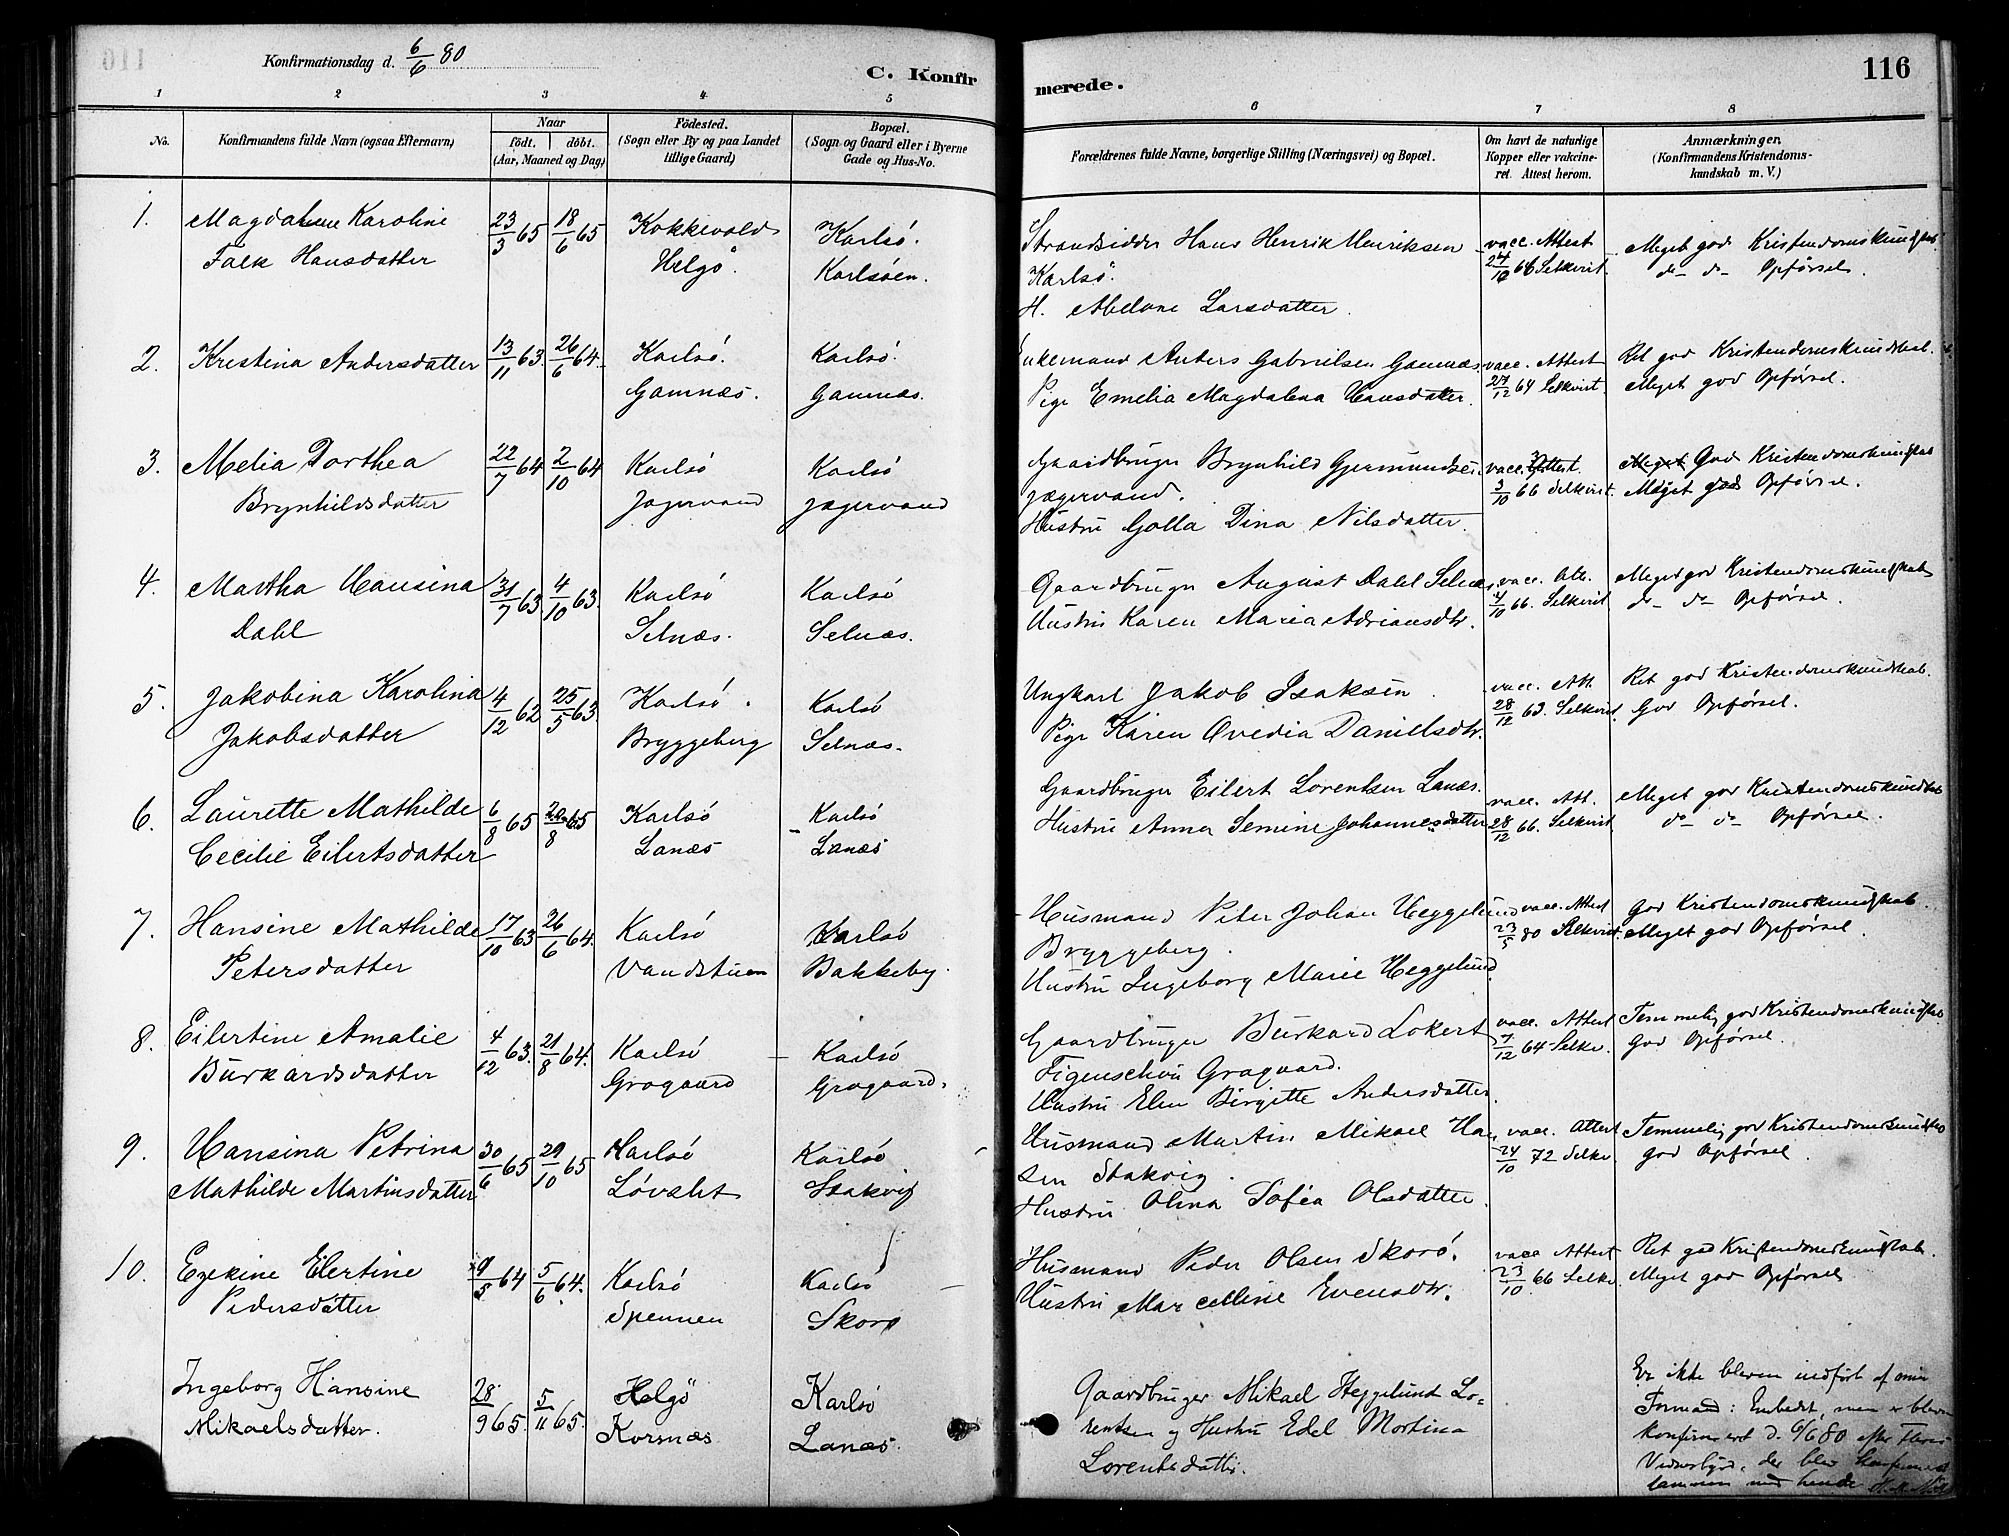 116
Konfirmationsdag d. 6/6 80
C. Konfirmerede.
1 2 3 4 5 6 7 8
No.
Konfirmandens fulde Navn (ogsaa Efternavn)
Naar
født. døbt.
(Aar, Maaned og Dag)
Fødested.
(Sogn eller By og paa Landet
tillige Gaard)
Bopæl.
(Sogn og Gaard eller i Byerne
Gade og Hus-No.
Forældrenes fulde Navne, borgerlige Stilling (Næringsvei) og Bopæl.
Om havt de naturlige
Kopper eller vakcine-
ret. Attest herom.
Anmærkninger.
(Konfirmandens Kristendoms-
kundskab m. V.)
1. Magdalene Karoline 23/3 65 18/6 65 Kokkevold Karlsö. Strandsidder Hans Henrik Henriksen vacc. Attest Meget god Kristendomskundskab
Falk Hansdatter Helgö. Karlsöen. Karlsö. 24/10 66 Selkvist d- d- Opførsel.
H. Abelone Larsdatter.
2. Krestina Andersdatter 13/11 63. 26/6 64. Karlsö. Karlsö. Enkemand Anders Gabrielsen Gamnæs. vacc. Attest Ret god Kristendomskundskab.
Gamnæs. Gamnæs. Pige Emelia Magdalena Hansdatter. 27/12 64 Selkvist. Meget god Opførsel.
3. Melia Dorthea 22/7 64 2/10 64 Karlsö Karlsö Gaardbruger Brynhild Gjermundsen vacc. Attest. Meget God Kristendomskundskab
Brynhildsdatter Jægervand Jægervand Jægervand. 3/10 66 Selkvist. Meget god Opførsel.
Hustru Golla Dina Nilsdatter.
4. Martha Hansina 31/7 63 4/10 63. Karlsö Karlsö Gaardbruger August Dahl Selnæs vacc. Att. Meget god Kristendomskundskab
Dahl Selnæs. Selnæs. Hustru Karen Maria Adriansdtr. 4/10 66. Selkvist d- d- Opførsel.
5. Jakobina Karolina 4/12 62 25/5 63 Karlsö. Karlsö Ungkarl Jakob Isaksen. vacc. Att. Ret god Kristendomskundskab.
Jakobsdatter Bryggeberg Selnæs. Pige Karen Ovedia Danielsdtr. 28/12 63. Selkvist. God Opførsel.
6. Laurette Mathilde 6/8 65 20/8 65 Karlsö Karlsö Gaardbruger Eilert Lorentsen Lanæs. vacc. Att. Meget god Kristendomskundskab
Cecilie Eilertsdatter Lanæs Lanæs Hustru Anna Semine Johannesdatter 28/12 66. Selkvist d- d- Opførsel.
7. Hansine Mathilde 17/10 63 26/6 64. Karlsö Karlsö Husmand Peter Johan Heggelund vacc. Attest God Kristendomskundskab.
Petersdatter Vandstuen Bakkeby. Bryggeberg. 23/5 80 Selkvist. Meget god Opførsel.
Hustru Ingeborg Marie Heggelund.
8. Eilertine Amalie 4/12 63. 21/8 64. Karlsö Karlsö Gaardbruger Burkard Lokert vacc. Attest Temmelig god Kristendomskundskab
Burkardsdatter Gragaard Gragaard. Figenschou Gragaard. 7/12 64 Selkv. God Opførsel.
Hustru Elen Birgitte Andersdatter.
9. Hansina Petrina 30/6 65 29/10 65 Karlsö Karlsö Husmand Martin Mikael Han vacc. Attest Temmelig god Kristendomskundskab
Mathilde Martinsdatter Løvslet Stakvig sen Stakvig. 24/10 72 Selkv. god Opførsel.
Hustru Olina Sofia Olsdatter.
10. Ezekine Elertine 9/5 64 5/6 64. Karlsö Karlsö Husmand Peder Olsen Skorö. vacc Attest Ret god Kristendomskundskab.
Pedersdatter Spennen Skorö Hustru Marcelline Evensdtr. 23/10 66 Selkv. Meget god Opførsel
Ingeborg Hansine 28/9 65. 5/11 65. Helgö Karlsö Gaardbruger Mikael Heggelund Lo- Er ikke bleven indført af min
Mikaelsdatter. Kornæs Lanæs. rentsen og Hustru Edel Mortina Formand i Embedet, men er bleven
Lorentsdatter. konfirmeret d. 6/6 80 efter Fleres
Vidnesbyrd, der blev konfirmeret
sammen med hende